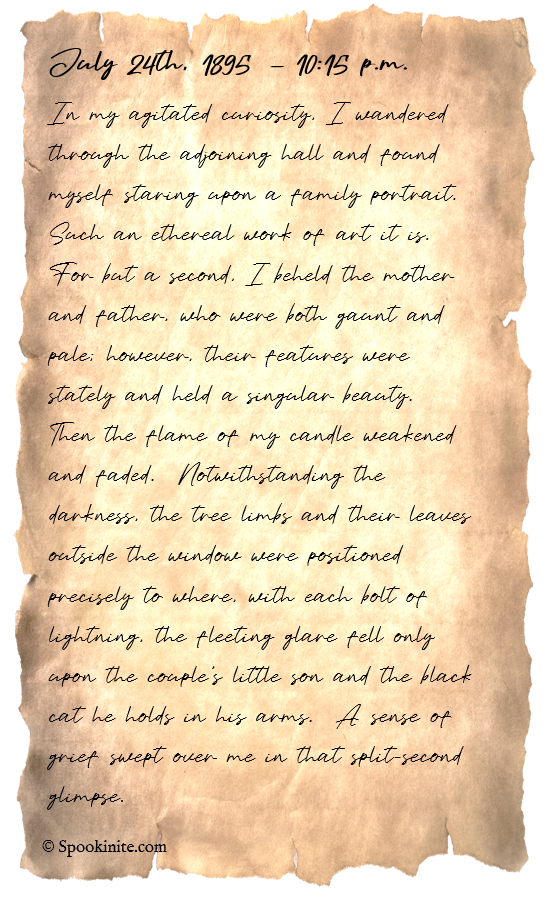 July 24th, 1895 – 10:15 p.m.
In my agitated curiosity, I wandered
through the adjoining hall and found
myself staring upon a family portrait.
Such an ethereal work of art it is.
For but a second, I beheld the mother
and father, who were both gaunt and
pale; however, their features were
stately and held a singular beauty.
Then the flame of my candle weakened
and faded. Notwithstanding the
darkness, the tree limbs and their leaves
outside the window were positioned
precisely to where, with each bolt of
lightning, the fleeting glare fell only
upon the couple's little son and the black
cat he holds in his arms. A sense of
grief swept over me in that split-second
glimpse.
© Spookinite.com